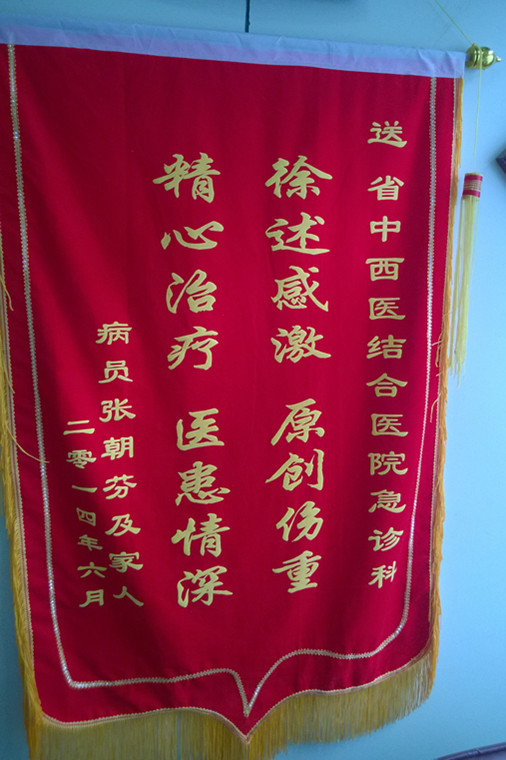 送 省中西医结合医院急诊科
徐述感激 原创伤重
精心治疗 医患情深
病员张朝芬及家人
二零一四年六月